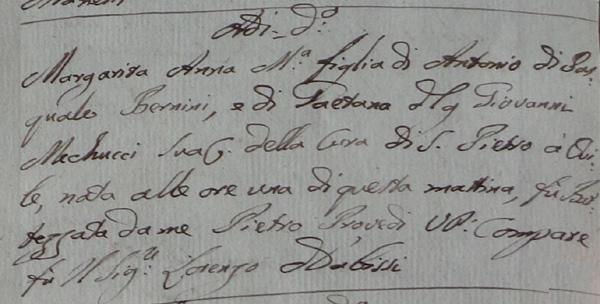 Adi d.º
Margarita Anna M.ª figlia di Antonio di Pas=
quale Bernini, e di Gaetana del q Giovanni
Mechucci sua C. della Cura di S. Pietro a Ovi=
le, nata alle ore una di questa mattina, fu Bat=
tezzata da me Pietro Provedi VP: Compare
fu Il Sig.re Lorenzo